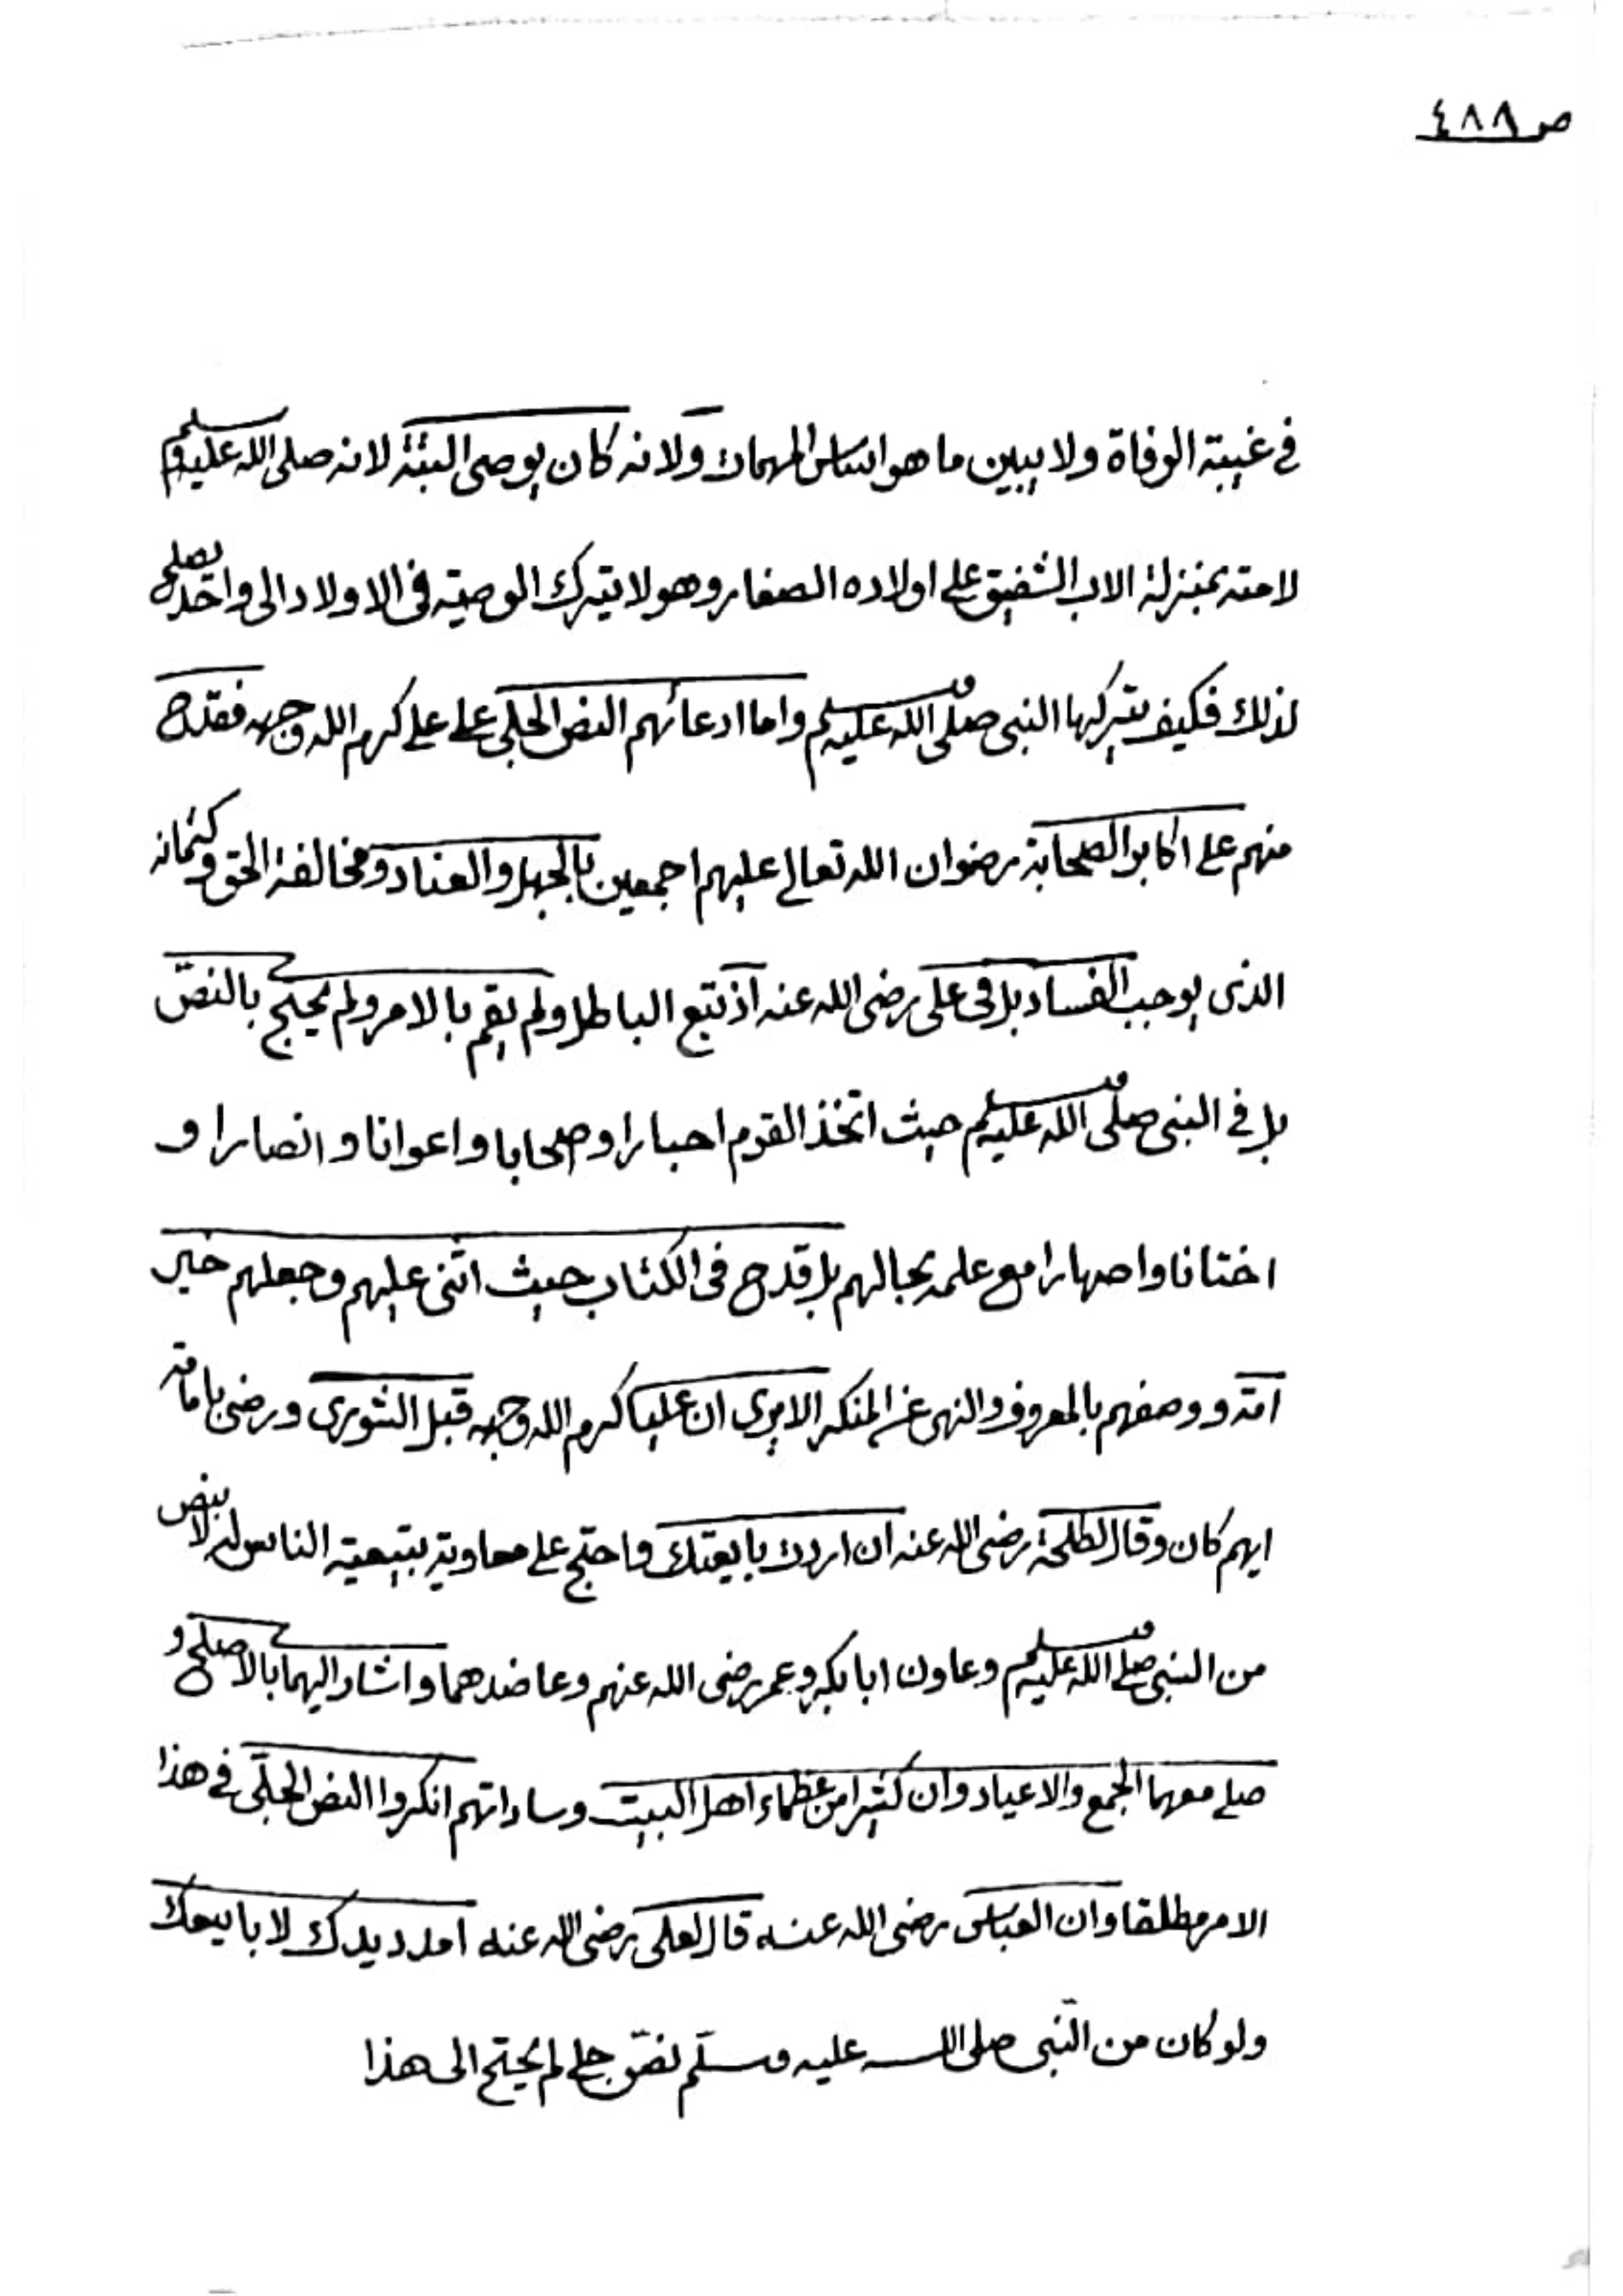 ص ٤٨٨
في غيبة الوفاة ولا يبين ما هو اساس المهمات ولانه كان يوصى البتة لانه صلى الله عليه وسلم
لامته بمنزلة الاب الشفيق على اولاده الصغار وهو لا يترك الوصية فى الاولاد الى واحد يصلح
لذلك فكيف يتركها النبى صلى الله عليه وسلم واما ادعائهم النص الجلى على على كرم الله وجهه فقدح
منهم على اكابر الصحابة رضوان الله تعالى عليهم اجمعين بالجهل والعناد ومخالفة الحق وكتمانه
الذى يوجب الفساد بل فى على رضى الله عنه اذ تتبع الباطل ولم يقم بالامر ولم يحتج بالنصّ
بل في النبى صلى الله عليه وسلم حيث اتخذ القوم احبارا وصحابا واعوانا وانصارا و
اختانا واصهارا مع علمه بحالهم بل قدح فى الكتاب حيث اثنى عليهم وجعلهم خير
امة ووصفهم بالمعروف والنهى عن المنكر الا يرى ان عليا كرم الله وجهه قبل الشورى ورضى بامامة
ايهم كان وقال لطلحة رضى الله عنه ان اردت بايعتك واحتج على معاوية بتبعية الناس له لا بنص
من النبى صلى الله عليه وسلم وعاون ابا بكر وعمر رضى الله عنهم وعاضدهما واشار اليهما بالاصلح و
صلى معهما الجمع والاعياد وان كثيرا من عظماء اهل البيت وساداتهم انكروا النص الجلّى في هذا
الامر مطلقا وان العباس رضى الله عنه قال لعلى رضى الله عنه امدد يدك لابايعك
ولو كان من النّبى صلى الله عليه وسلّم نصّ جلى لم يحتج الى هذا